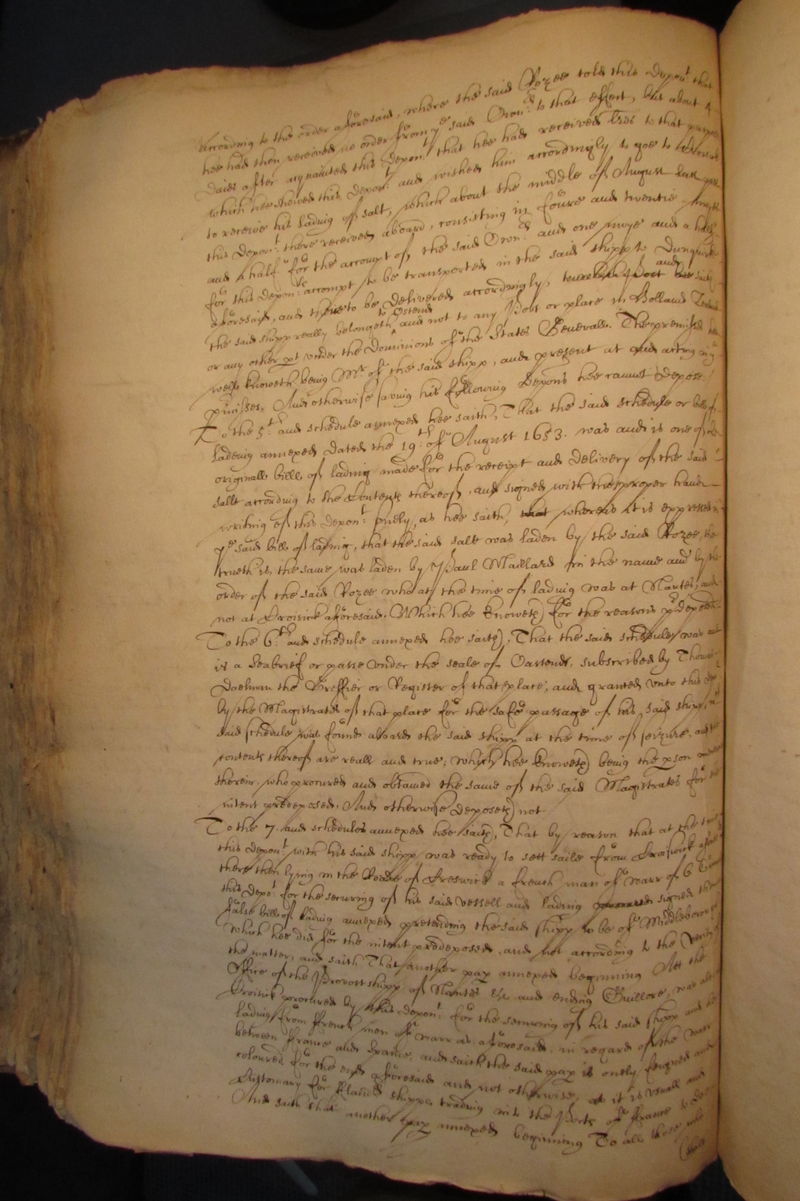 according to the order aforesaid, where the said Rozee told this depont that
hee had then received no order from ye said Own:rs to that effect, but about
daies after acquainted this depont that hee had received tres to that purpose
which hee shewed this depont and wished him accordingly to goe to
to receive his lading of salt, which about the middle of August last past
this depont there received aboard, consisting in foure and twentie
and a half for the accompt of the said Own:rs and one moye and a half
for this deponts accompt to be transported in the said shipp to Dunquirke
aforesaid, and there to be delivered accordingly, and
the said shipp really belongeth to Ostend and not to any Port or place in Holland
or any other pt under the Dominions of the States Generall. The premisses hee
well knoweth being Mr of the said shipp, and present at and acting in ye
premisses. And otherwise saving his following deposns hee cannot depose
To the 5th and schedule annexed hee saith, That the said schedule or bill of
ladeing annexed dated the 19th of August 1653. was and is one of the
originall bills of lading made for the receipt and delivery of the said
salt according to the Contents thereof, and signed with the proper hand
writing of this depont onely, as hee saith, that whereas it is expressed in
ye said bill of lading, that the said salt was laden by the said Rozee, the
trueth is, the same was laden by Paul Maillard in the name and by the
order of the said Rozee who at the time of lading was at Nantes, and
not at Croisick aforesaid. Which hee knoweth for the reasons predeposed.
To the 6th and schedule annexed hee saith, That the said schedule was and
is a Seabrief or passe under the seale of Oastend, subscribed by Thomas
Doelman the Greffier or Register of that place, and granted unto this dept
by the Magistrates of that place for the safe passage of his said shipp,
said schedule was found aboard the said shipp at the time of seizure, and the
contents thereof are reall and true, which hee knoweth being the pson
therein, who procured and obtained the same of the said Magistrates for the
intent predeposed, And otherwise deposeth not
To the 7. and schedules annexed hee saith, That by reason that at the time
this depont with his said shipp was ready to sett saile from Croiswick
there then lying in the Roade of Croswick a french man of warr of 6
this depont for the securing of his said vessell and lading signed the
false bill of lading annexed pretending the said shipp to be of Middleborough
which hee did for the intent predeposed, and not according to the verity of
the matter, and saith That another pap annexed beginning At the
Office of the Provostshipp of Nantes &c and ending Guillore, was at
Croisick procured by this depont for the securing of his said shipp and
lading from French men of warr as aforesaid, in regard of the warr
between France and Spaine, and saith the said pap is onely feigned and
coloured for the ends aforesaid and not otherwise, as it is usuall and
Customary for Flanders shipps trading into the Ports of France to
And saith that another pap annexed beginning To all those who